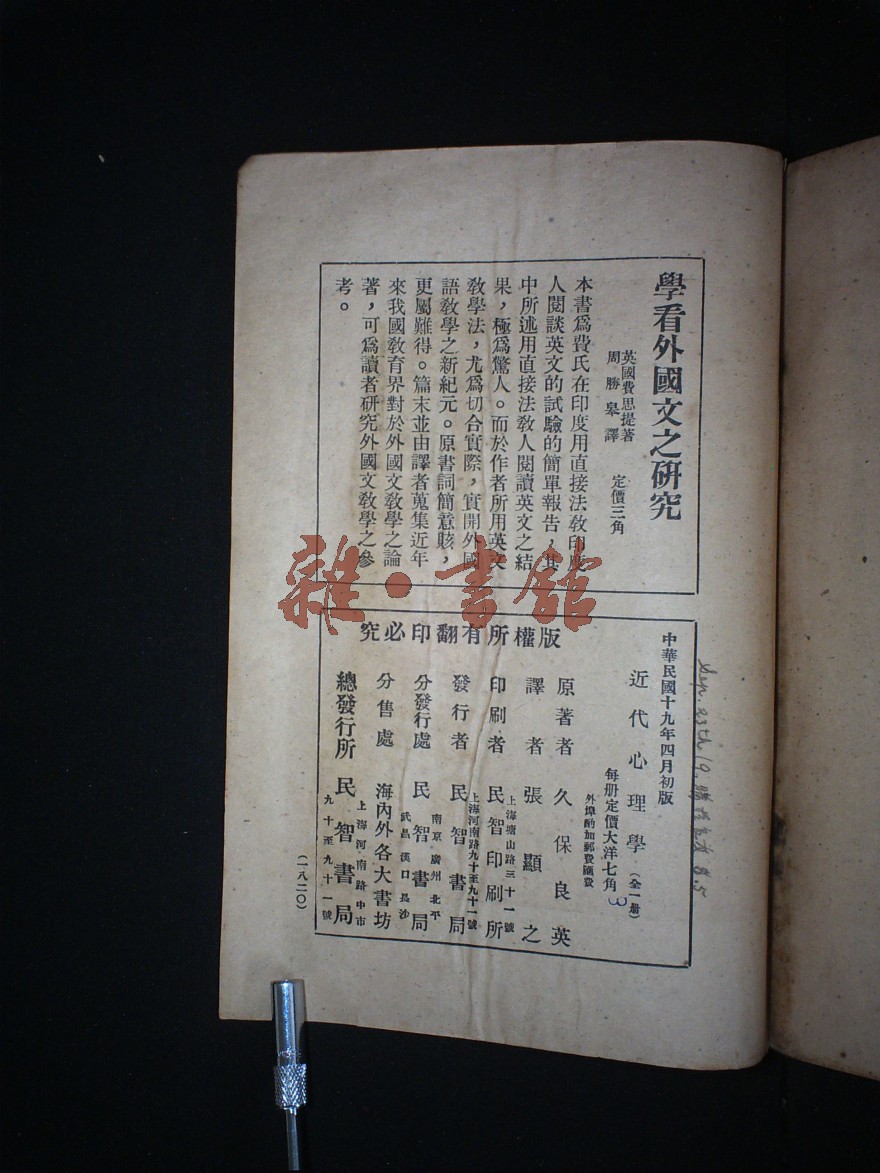 學看外國文之研究
英國費思提著
周勝皋譯
定價三角
本書爲費氏在印度用直接法敎印度
人閱談英文的試驗的簡單報告，其
中所述用直接法敎人閱讀英文之結
果，極爲驚人。而於作者所用英文
敎學法，尤爲切合實際，實開外國
語敎學之新紀元。原書詞簡意賅，
更屬難得。篇末並由譯者蒐集近年
來我國敎育界對於外國文敎學之論
著，可爲讀者研究外國文敎學之參
考。
雜·書館
版權所有翻印必究
中華民國十九年四月初版
近代心理學（全一册）
每册定價大洋七角
外埠酌加郵費匯費
原著者 久保良英
譯者 張顯之
印刷者 民智印刷所
上海塘山路三十一號
發行者 民智書局
上海河南路九十至九十一號
分發行處 民智書局
南京 廣州 北平
武昌 漢口 長沙
分售處 海內外各大書坊
總發行所 民智書局
上海河南路中市
九十至九十一號
（一八二〇）